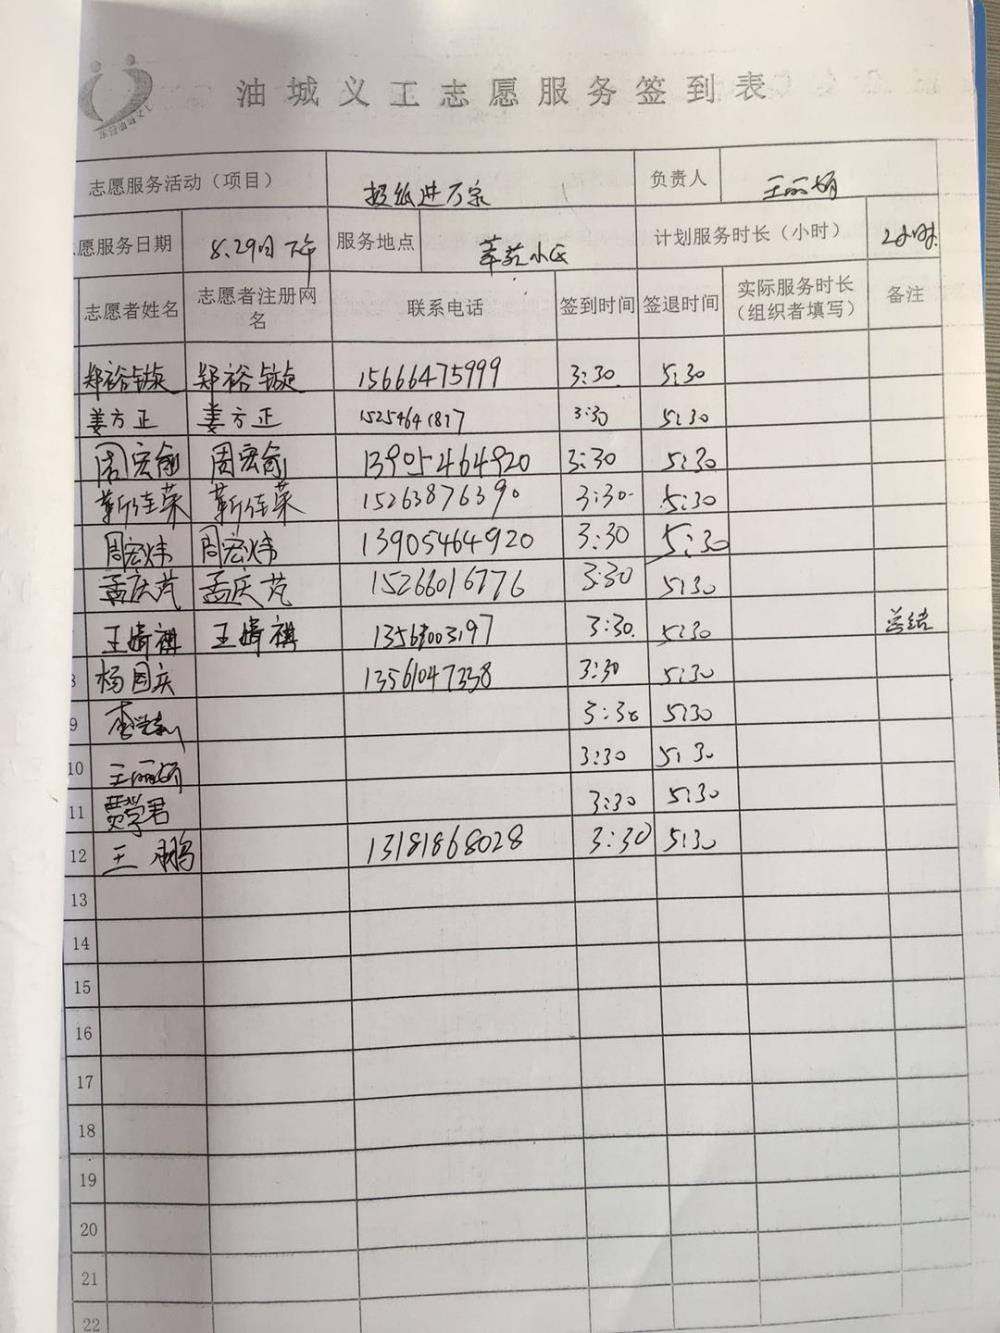 油城义工志愿服务签到表
志愿服务活动（项目） 报纸进万家 负责人 王丽娟
愿服务日期 8.29日下午 服务地点 莘苑小区 计划服务时长（小时） 2小时
志愿者姓名 志愿者注册网名 联系电话 签到时间 签退时间 实际服务时长（组织者填写） 备注
郑裕镟 郑裕镟 15666475999 3:30 5:30
姜方正 姜方正 3:30 5:30
周宏俞 周宏俞 13905464920 3:30 5:30
靳佳荣 靳佳荣 15263876390 3:30 5:30
周宏炜 周宏炜 13905464920 3:30 5:30
孟庆芃 孟庆芃 15266016776 3:30 5:30
王婧祺 王婧祺 3:30 5:30 总结
8 杨国庆 13561047338 3:30 5:30
9 3:30 5:30
10 王丽娟 3:30 5:30
11 贾学君 3:30 5:30
12 王鹏 13181868028 3:30 5:30
13
14
15
16
17
18
19
20
21
22